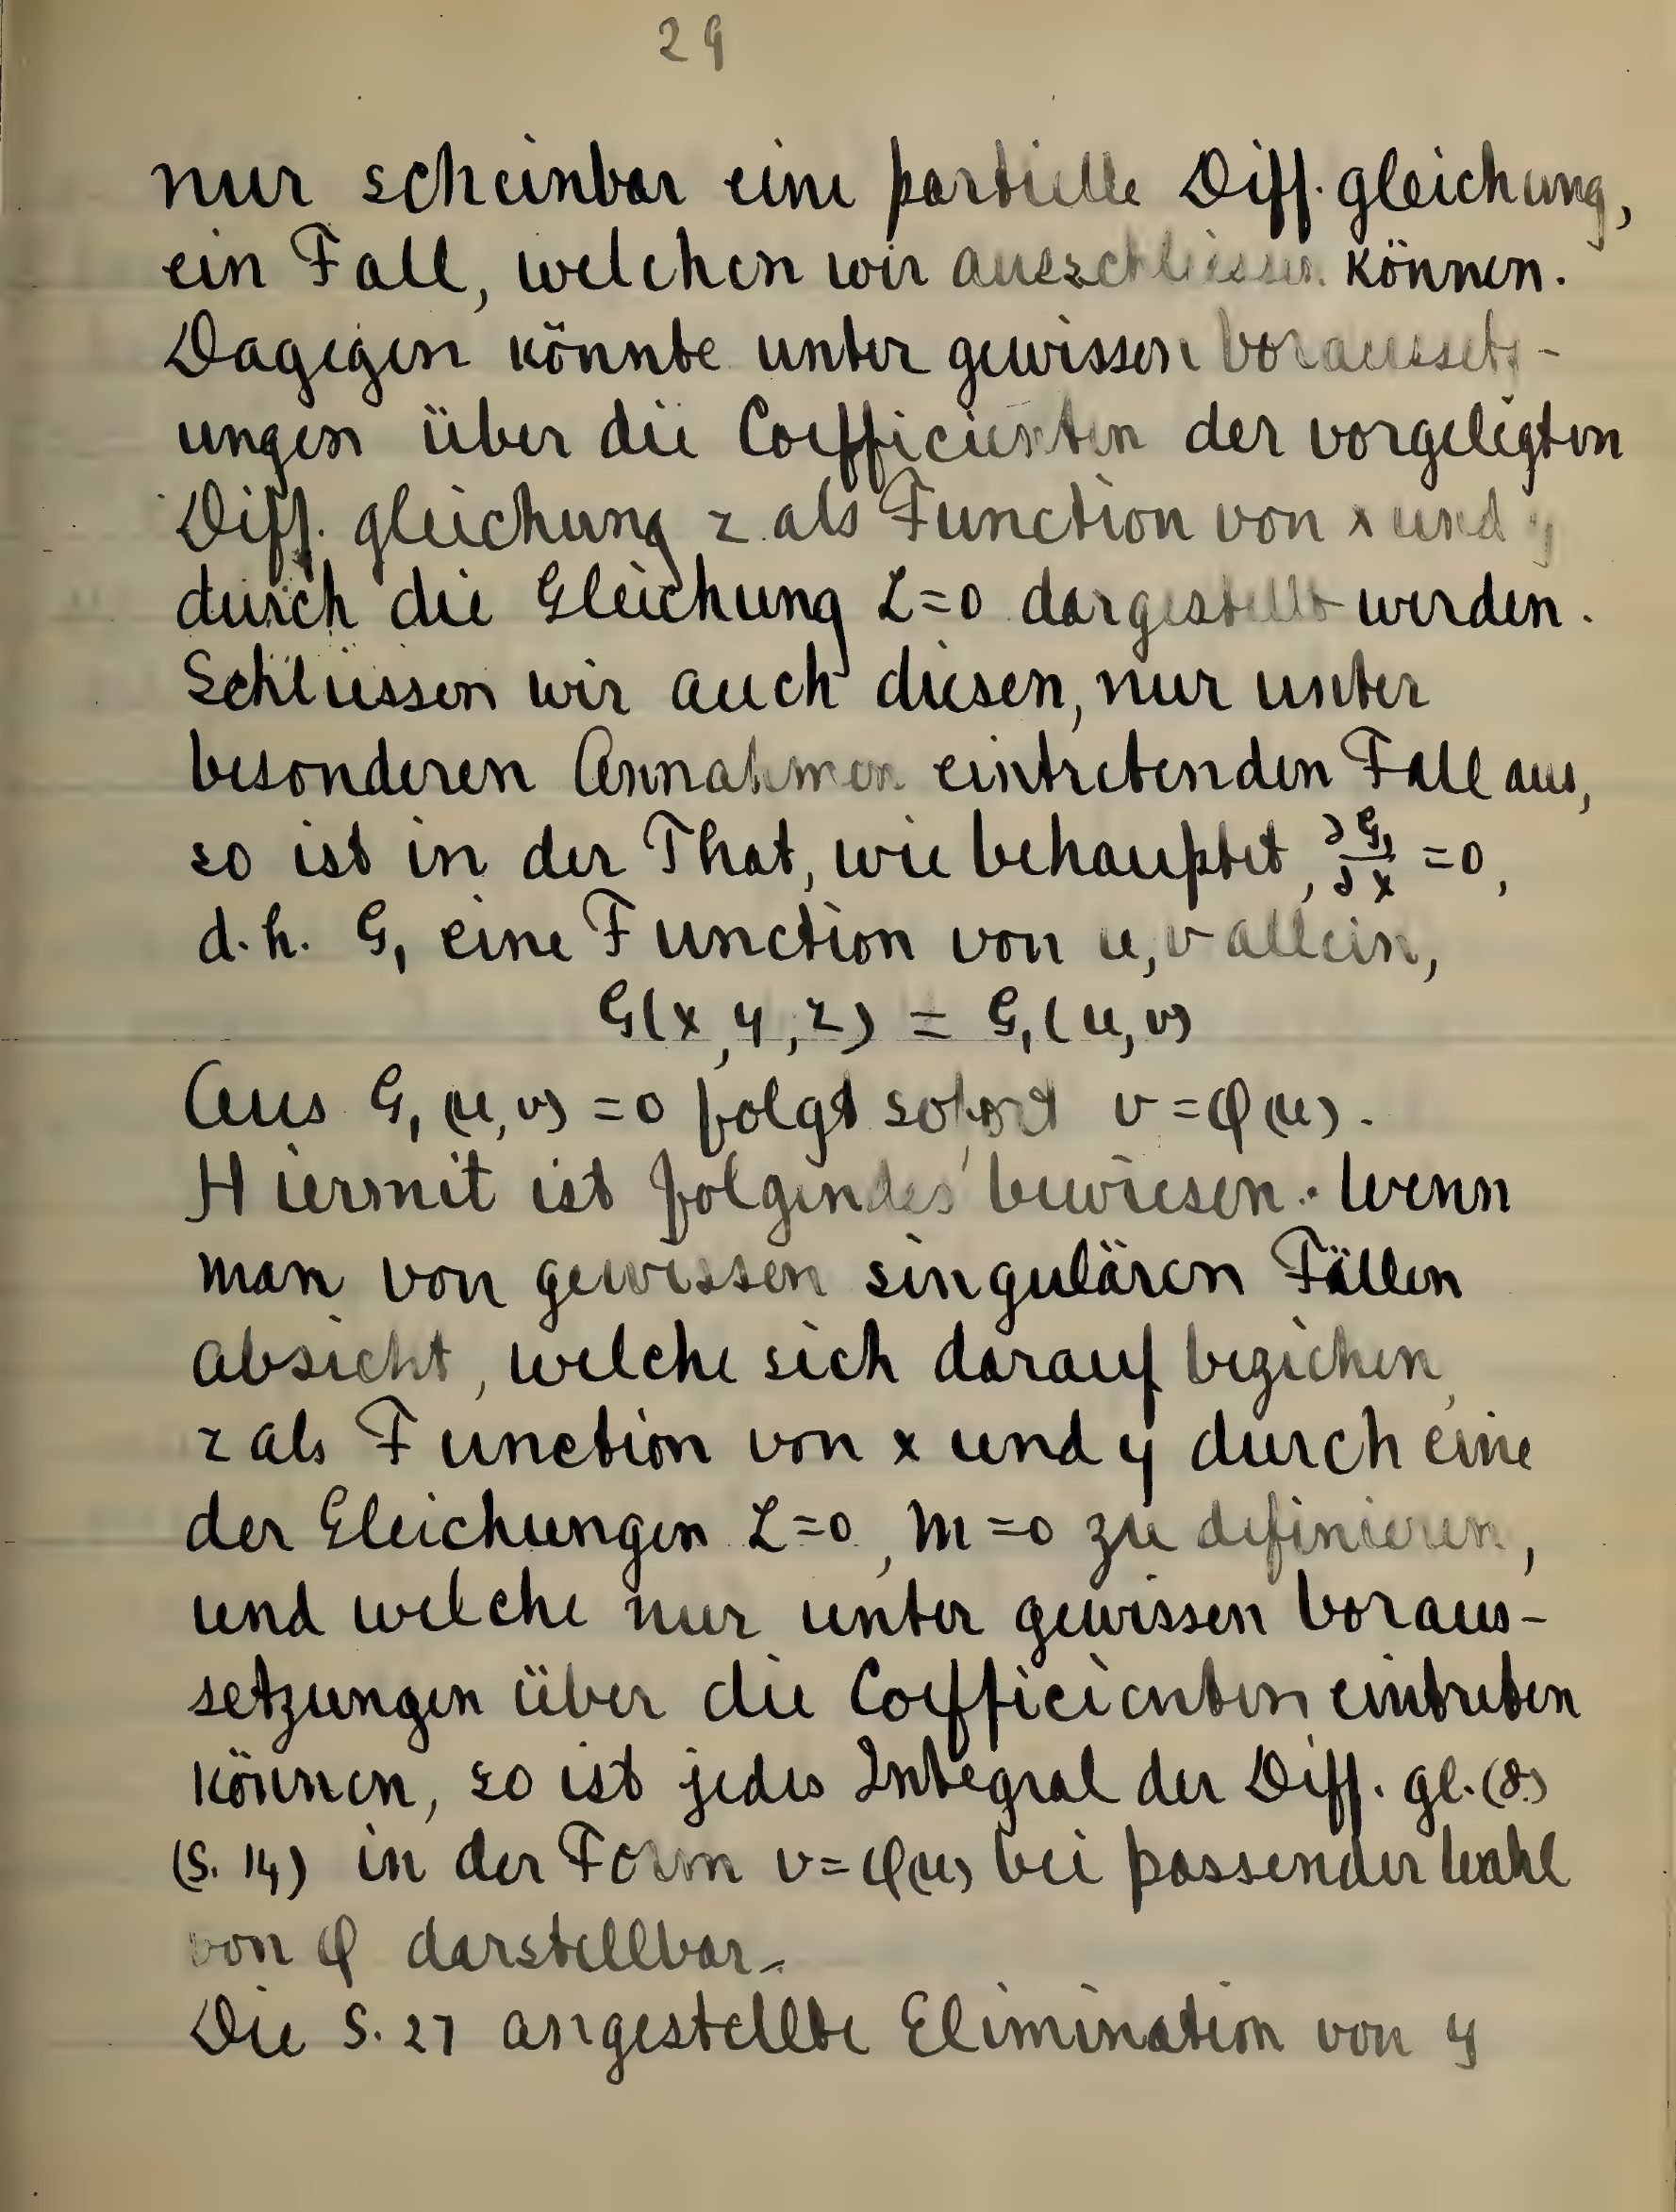 29
nur scheinbar eine partielle Diff. gleichung,
ein Fall, welchen wir ausschliessen können.
Dagegen könnte unter gewissen Voraussetz-
ungen über die Coefficienten der vorgelegten
Diff. gleichung z als Function von x und y
durch die Gleichung L=0 dargestellt werden.
Schliessen wir auch diesen, nur unter
besonderen Annahmen eintretenden Fall aus,
so ist in der That, wie behauptet, ∂G₁/∂x = 0,
d. h. G₁ eine Function von u, v allein,
G(x, y, z) = G₁(u, v)
Aus G₁(u, v) = 0 folgt sofort v = φ(u).
Hiermit ist folgendes bewiesen. Wenn
man von gewissen singulären Fällen
absieht, welche sich darauf beziehen,
z als Function von x und y durch eine
der Gleichungen L=0, M=0 zu definieren,
und welche nur unter gewissen Voraus-
setzungen über die Coefficienten eintreten
können, so ist jedes Integral der Diff. gl. (8.)
(S. 14) in der Form v = φ(u) bei passender Wahl
von φ darstellbar.
Die S. 27 angestellte Elimination von y